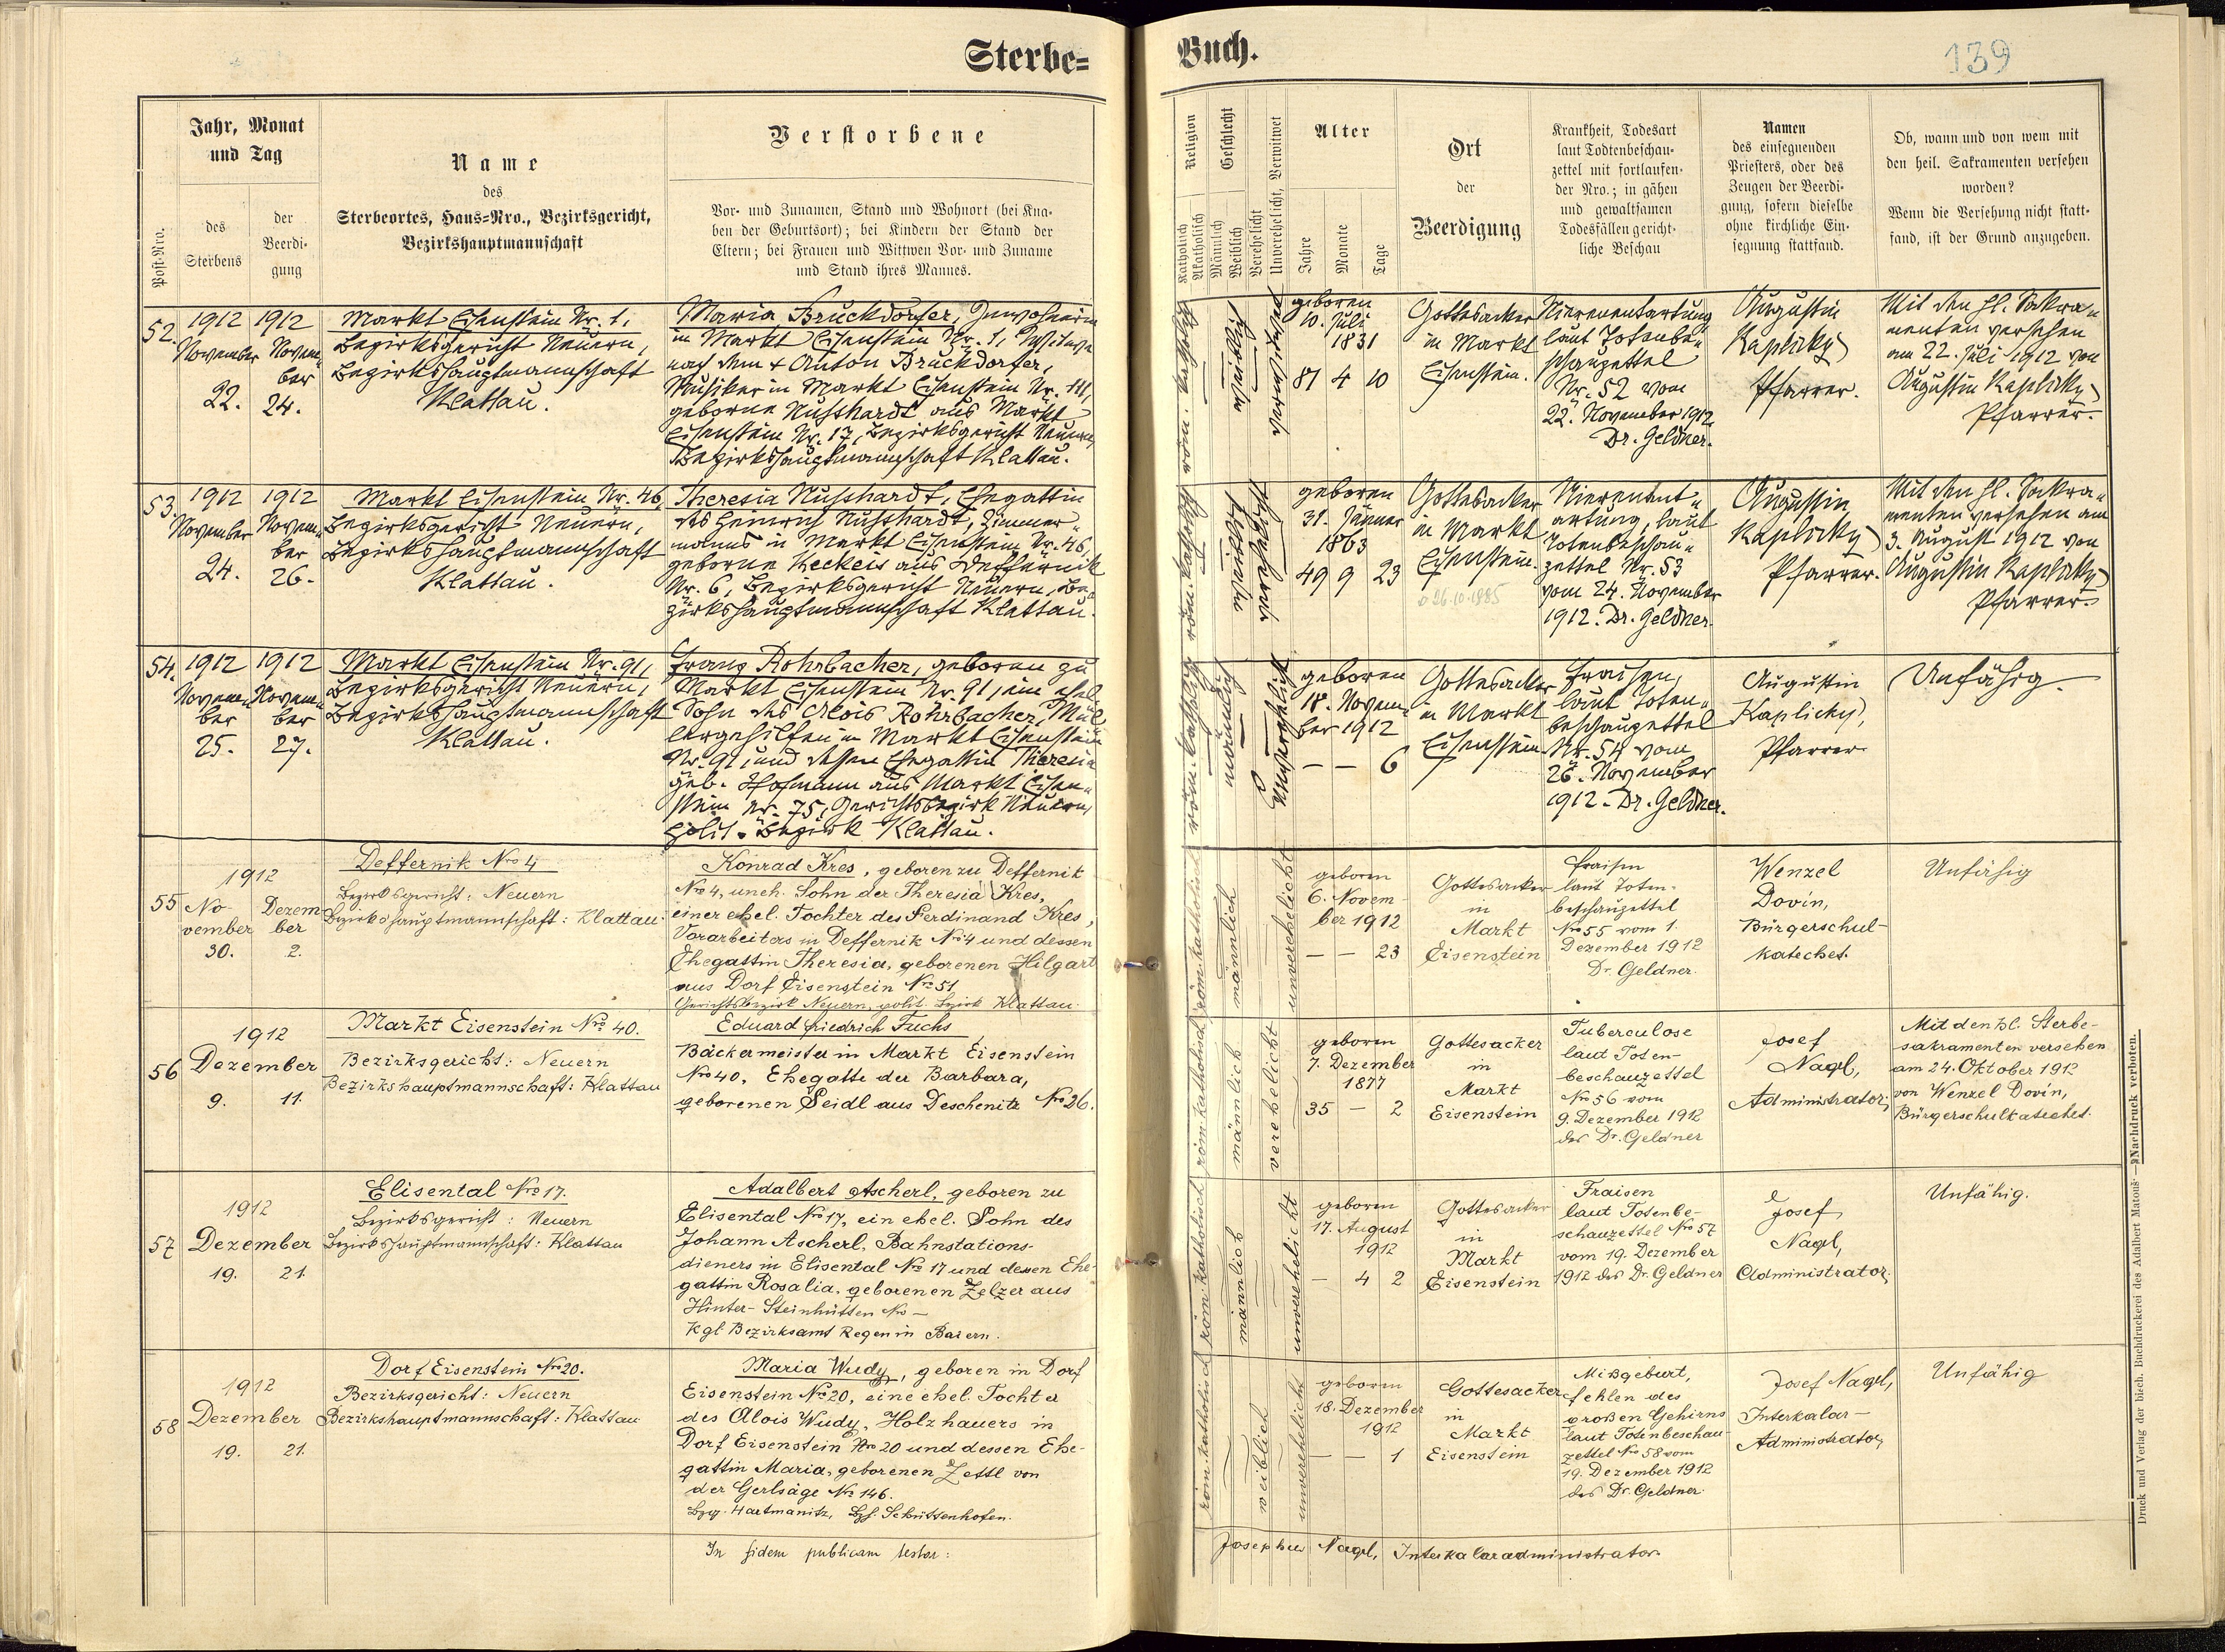 Sterbe=
Buch.
139
Jahr, Monat
und Tag
Name
des
Sterbeortes, Haus=Nro., Bezirksgericht,
Bezirkshauptmannschaft
Verstorbene
Post-Nro.
des
Sterbens
der
Beerdi-
gung
Vor- und Zunamen, Stand und Wohnort (bei Kna-
ben der Geburtsort); bei Kindern der Stand der
Eltern; bei Frauen und Wittwen Vor- und Zuname
und Stand ihres Mannes.
Religion
Geschlecht
Katholisch
Akatholisch
Männlich
Weiblich
Verehelicht
Unverehelicht, Verwitwet
Alter
Jahre
Monate
Tage
Ort
der
Beerdigung
Krankheit, Todesart
laut Todtenbeschau-
zettel mit fortlaufen-
der Nro.; in gähen
und gewaltsamen
Todesfällen gericht-
liche Beschau
Namen
des einsegnenden
Priesters, oder des
Zeugen der Beerdi-
gung, sofern dieselbe
ohne kirchliche Ein-
segnung stattfand.
Ob, wann und von wem mit
den heil. Sakramenten versehen
worden?
Wenn die Versehung nicht statt-
fand, ist der Grund anzugeben.
52.
1912 1912
November Novem-
ber
22. 24.
Markt Eisenstein Nr. 1,
Bezirksgericht Neuern,
Bezirkshauptmannschaft
Klattau.
Maria Bruckdorfer, Inwohnerin
in Markt Eisenstein Nr. 1, Witwe
nach dem + Anton Bruckdorfer,
Musiker in Markt Eisenstein Nr. 111,
geborne Nusshardt aus Markt
Eisenstein Nr. 17, Bezirksgericht Neuern,
Bezirkshauptmannschaft Klattau.
röm. katholisch
weiblich
verwitwet
geboren
10. Juli
1831
81 4 10
Gottesacker
in Markt
Eisenstein.
Nierenentartung
laut Totenbe-
schauzettel
Nr. 52 vom
22. November 1912
Dr. Geldner.
Augustin
Kaplicky,
Pfarrer.
Mit den hl. Sakra-
menten versehen
am 22. Juli 1912 von
Augustin Kaplicky,
Pfarrer.
53.
1912 1912
November Novem-
ber
24. 26.
Markt Eisenstein Nr. 46,
Bezirksgericht Neuern,
Bezirkshauptmannschaft
Klattau.
Theresia Nusshardt, Ehegattin
des Heinrich Nusshardt, Zimmer-
manns in Markt Eisenstein Nr. 46,
geborne Keckeis aus Deffernik
Nr. 6, Bezirksgericht Neuern, Be-
zirkshauptmannschaft Klattau.
röm. katholisch
weiblich
verehelicht
geboren
31. Jänner
1863
49 9 23
Gottesacker
in Markt
Eisenstein.
26.10.1985
Nierenent-
artung, laut
Totenbeschau-
zettel Nr. 53
vom 24. November
1912. Dr. Geldner.
Augustin
Kaplicky,
Pfarrer.
Mit den hl. Sakra-
menten versehen am
3. August 1912 von
Augustin Kaplicky,
Pfarrer.
54.
1912 1912
Novem- Novem-
ber ber
25. 27.
Markt Eisenstein Nr. 91,
Bezirksgericht Neuern,
Bezirkshauptmannschaft
Klattau.
Franz Rohrbacher, geboren zu
Markt Eisenstein Nr. 91, ein ehel.
Sohn des Alois Rohrbacher, Mül-
lergehilfen in Markt Eisenstein
Nr. 91, und dessen Ehegattin Theresia
geb. Hofmann aus Markt Eisen-
stein Nr. 75, Gerichtsbezirk Neuern,
polit. Bezirk Klattau.
röm. katholisch
männlich
Unverehelicht
geboren
18. Novem-
ber 1912
— — 6
Gottesacker
in Markt
Eisenstein
Fraisen,
laut Toten-
beschauzettel
Nr. 54 vom
26. November
1912. Dr. Geldner.
Augustin
Kaplicky,
Pfarrer
Unfähig.
55
1912
No- Dezem
vember ber
30. 2.
Deffernik Nro 4
Bezirksgericht: Neuern
Bezirkshauptmannschaft: Klattau
Konrad Kres, geboren zu Deffernik
Nro 4, uneh. Sohn der Theresia Kres,
einer ehel. Tochter des Ferdinand Kres,
Vorarbeiters in Deffernik Nro 4 und dessen
Ehegattin Theresia, geborenen Hilgart
aus Dorf Eisenstein Nro 51
Gerichtsbezirk Neuern, polit. Bezirk Klattau.
röm. katholisch
männlich
unverehelicht
geboren
6. Novem-
ber 1912
— — 23
Gottesacker
in
Markt
Eisenstein
Fraisen
laut Toten-
beschauzettel
Nro 55 vom 1.
Dezember 1912
Dr. Geldner.
Wenzel
Dovin,
Bürgerschul-
katechet.
Unfähig
56
1912
Dezember
9. 11.
Markt Eisenstein Nro 40.
Bezirksgericht: Neuern
Bezirkshauptmannschaft: Klattau
Eduard Friedrich Fuchs
Bäckermeister in Markt Eisenstein
Nro 40, Ehegatte der Barbara,
geborenen Seidl aus Deschenitz Nro 26.
röm. katholisch
männlich
verehelicht
geboren
7. Dezember
1877
35 — 2
Gottesacker
in
Markt
Eisenstein
Tuberculose
laut Toten-
beschauzettel
Nro 56 vom
9. Dezember 1912
des Dr. Geldner
Josef
Nagl,
Administrator;
Mit den hl. Sterbe-
sakramenten versehen
am 24. Oktober 1912
von Wenzel Dovin,
Bürgerschulkatechet.
57
1912
Dezember
19. 21.
Elisental Nro 17.
Bezirksgericht: Neuern
Bezirkshauptmannschaft: Klattau
Adalbert Ascherl, geboren zu
Elisental Nro 17, ein ehel. Sohn des
Johann Ascherl, Bahnstations-
dieners in Elisental Nro 17 und dessen Ehe-
gattin Rosalia, geborenen Zelzer aus
Hinter-Steinhütten Nro —
Kgl. Bezirksamt Regen in Baiern.
röm. katholisch
männlich
unverehelicht
geboren
17. August
1912
— 4 2
Gottesacker
in
Markt
Eisenstein
Fraisen
laut Totenbe-
schauzettel Nro 57
vom 19. Dezember
1912 des Dr. Geldner
Josef
Nagl,
Administrator;
Unfähig.
58
1912
Dezember
19. 21.
Dorf Eisenstein Nro 20.
Bezirksgericht: Neuern
Bezirkshauptmannschaft: Klattau
Maria Wudy, geboren in Dorf
Eisenstein Nro 20, eine ehel. Tochter
des Alois Wudy, Holzhauers in
Dorf Eisenstein Nro 20 und dessen Ehe-
gattin Maria, geborenen Zettl von
der Gerlsäge Nro 146.
Bzg. Hartmanitz, Bzh. Schüttenhofen.
röm. katholisch
weiblich
unverehelicht
geboren
18. Dezember
1912
— — 1
Gottesacker
in
Markt
Eisenstein
Mißgeburt,
fehlen des
großen Gehirns
laut Totenbeschau-
zettel Nro 58 vom
19. Dezember 1912
des Dr. Geldner
Josef Nagl,
Interkalar-
Administrator,
Unfähig
In fidem publicam testor:
Josephus Nagl, Interkalaradministrator.
Druck und Verlag der bisch. Buchdruckerei des Adalbert Matouš — Nachdruck verboten.